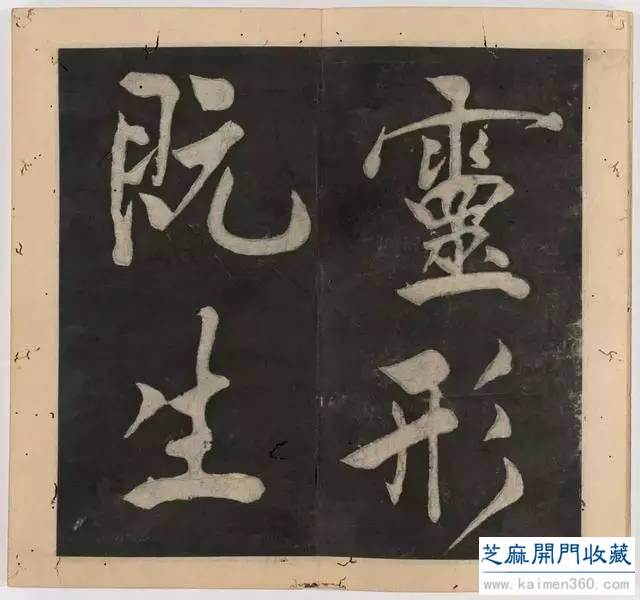 靈形
既生
芝麻開門收藏
www.kaimen360.com